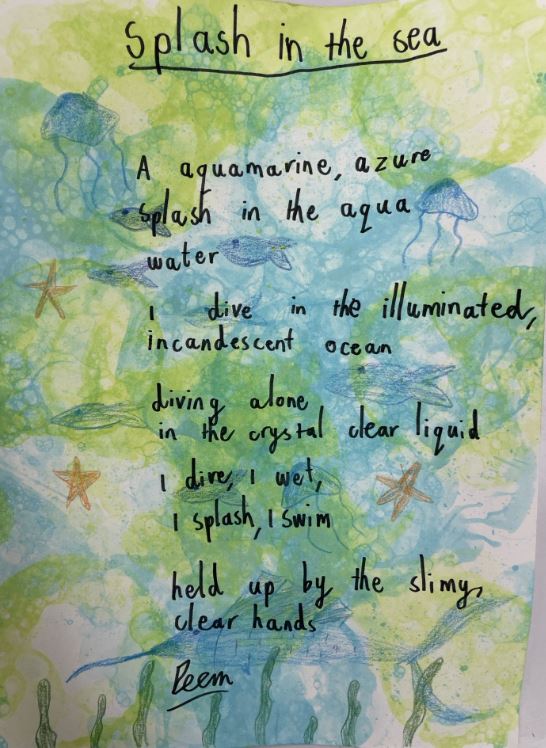 Splash in the sea
A aquamarine, azure
splash in the aqua
water
I dive in the illuminated,
incandescent ocean
diving alone
in the crystal clear liquid
I dive, I wet,
I splash, I swim
held up by the slimy,
clear hands
Peem